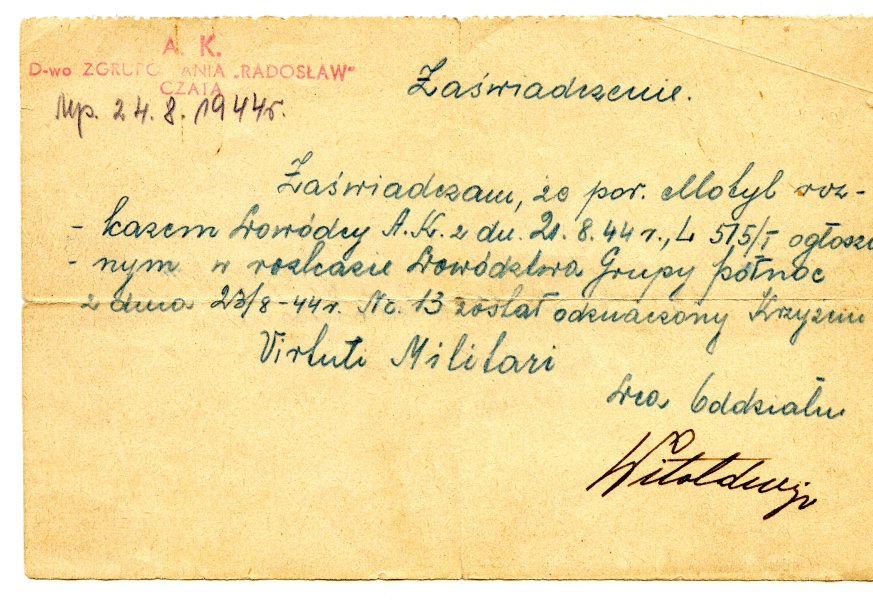 A. K.
D-wo ZGRUPOWANIA „RADOSŁAW"
CZATA
Mp. 24.8.1944r.
Zaświadczenie.
Zaświadczam, że por. Motyl roz-
- kazem Dowódcy A.K. z dn. 21.8.44 r., L 515/I ogłoszo
- nym w rozkazie Dowództwa Grupy północ
z dnia 23/8-44r. Nr. 13 został odznaczony Krzyżem
Virtuti Militari
Dca Oddziału